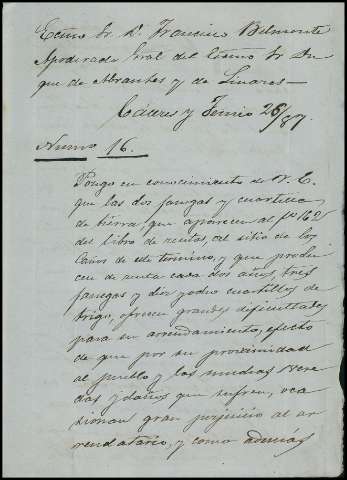 Ecmo Sr. Dn. Francisco Belmonte
Apoderado Gral del Ecsmo Sr Du
que de Abrantes y de Linares —
Cáceres y Junio 26/87.
Numo 16.
Pongo en conocimiento de V. E.
que las dos fanegas y cuartilla
de tierra, que aparecen al fº 162
del libro de rentas, al sitio de los
Caños de este término, y que produ
cen de renta cada dos años, tres
fanegas y dos y
cuartillos de
trigo, ofrecen grandes dificultades
para su arrendamiento, efecto
de que por su proximidad
al pueblo y las muchas vere
das y daños que sufren, oca
sionan gran perjuicio al ar
rendatario, y como además